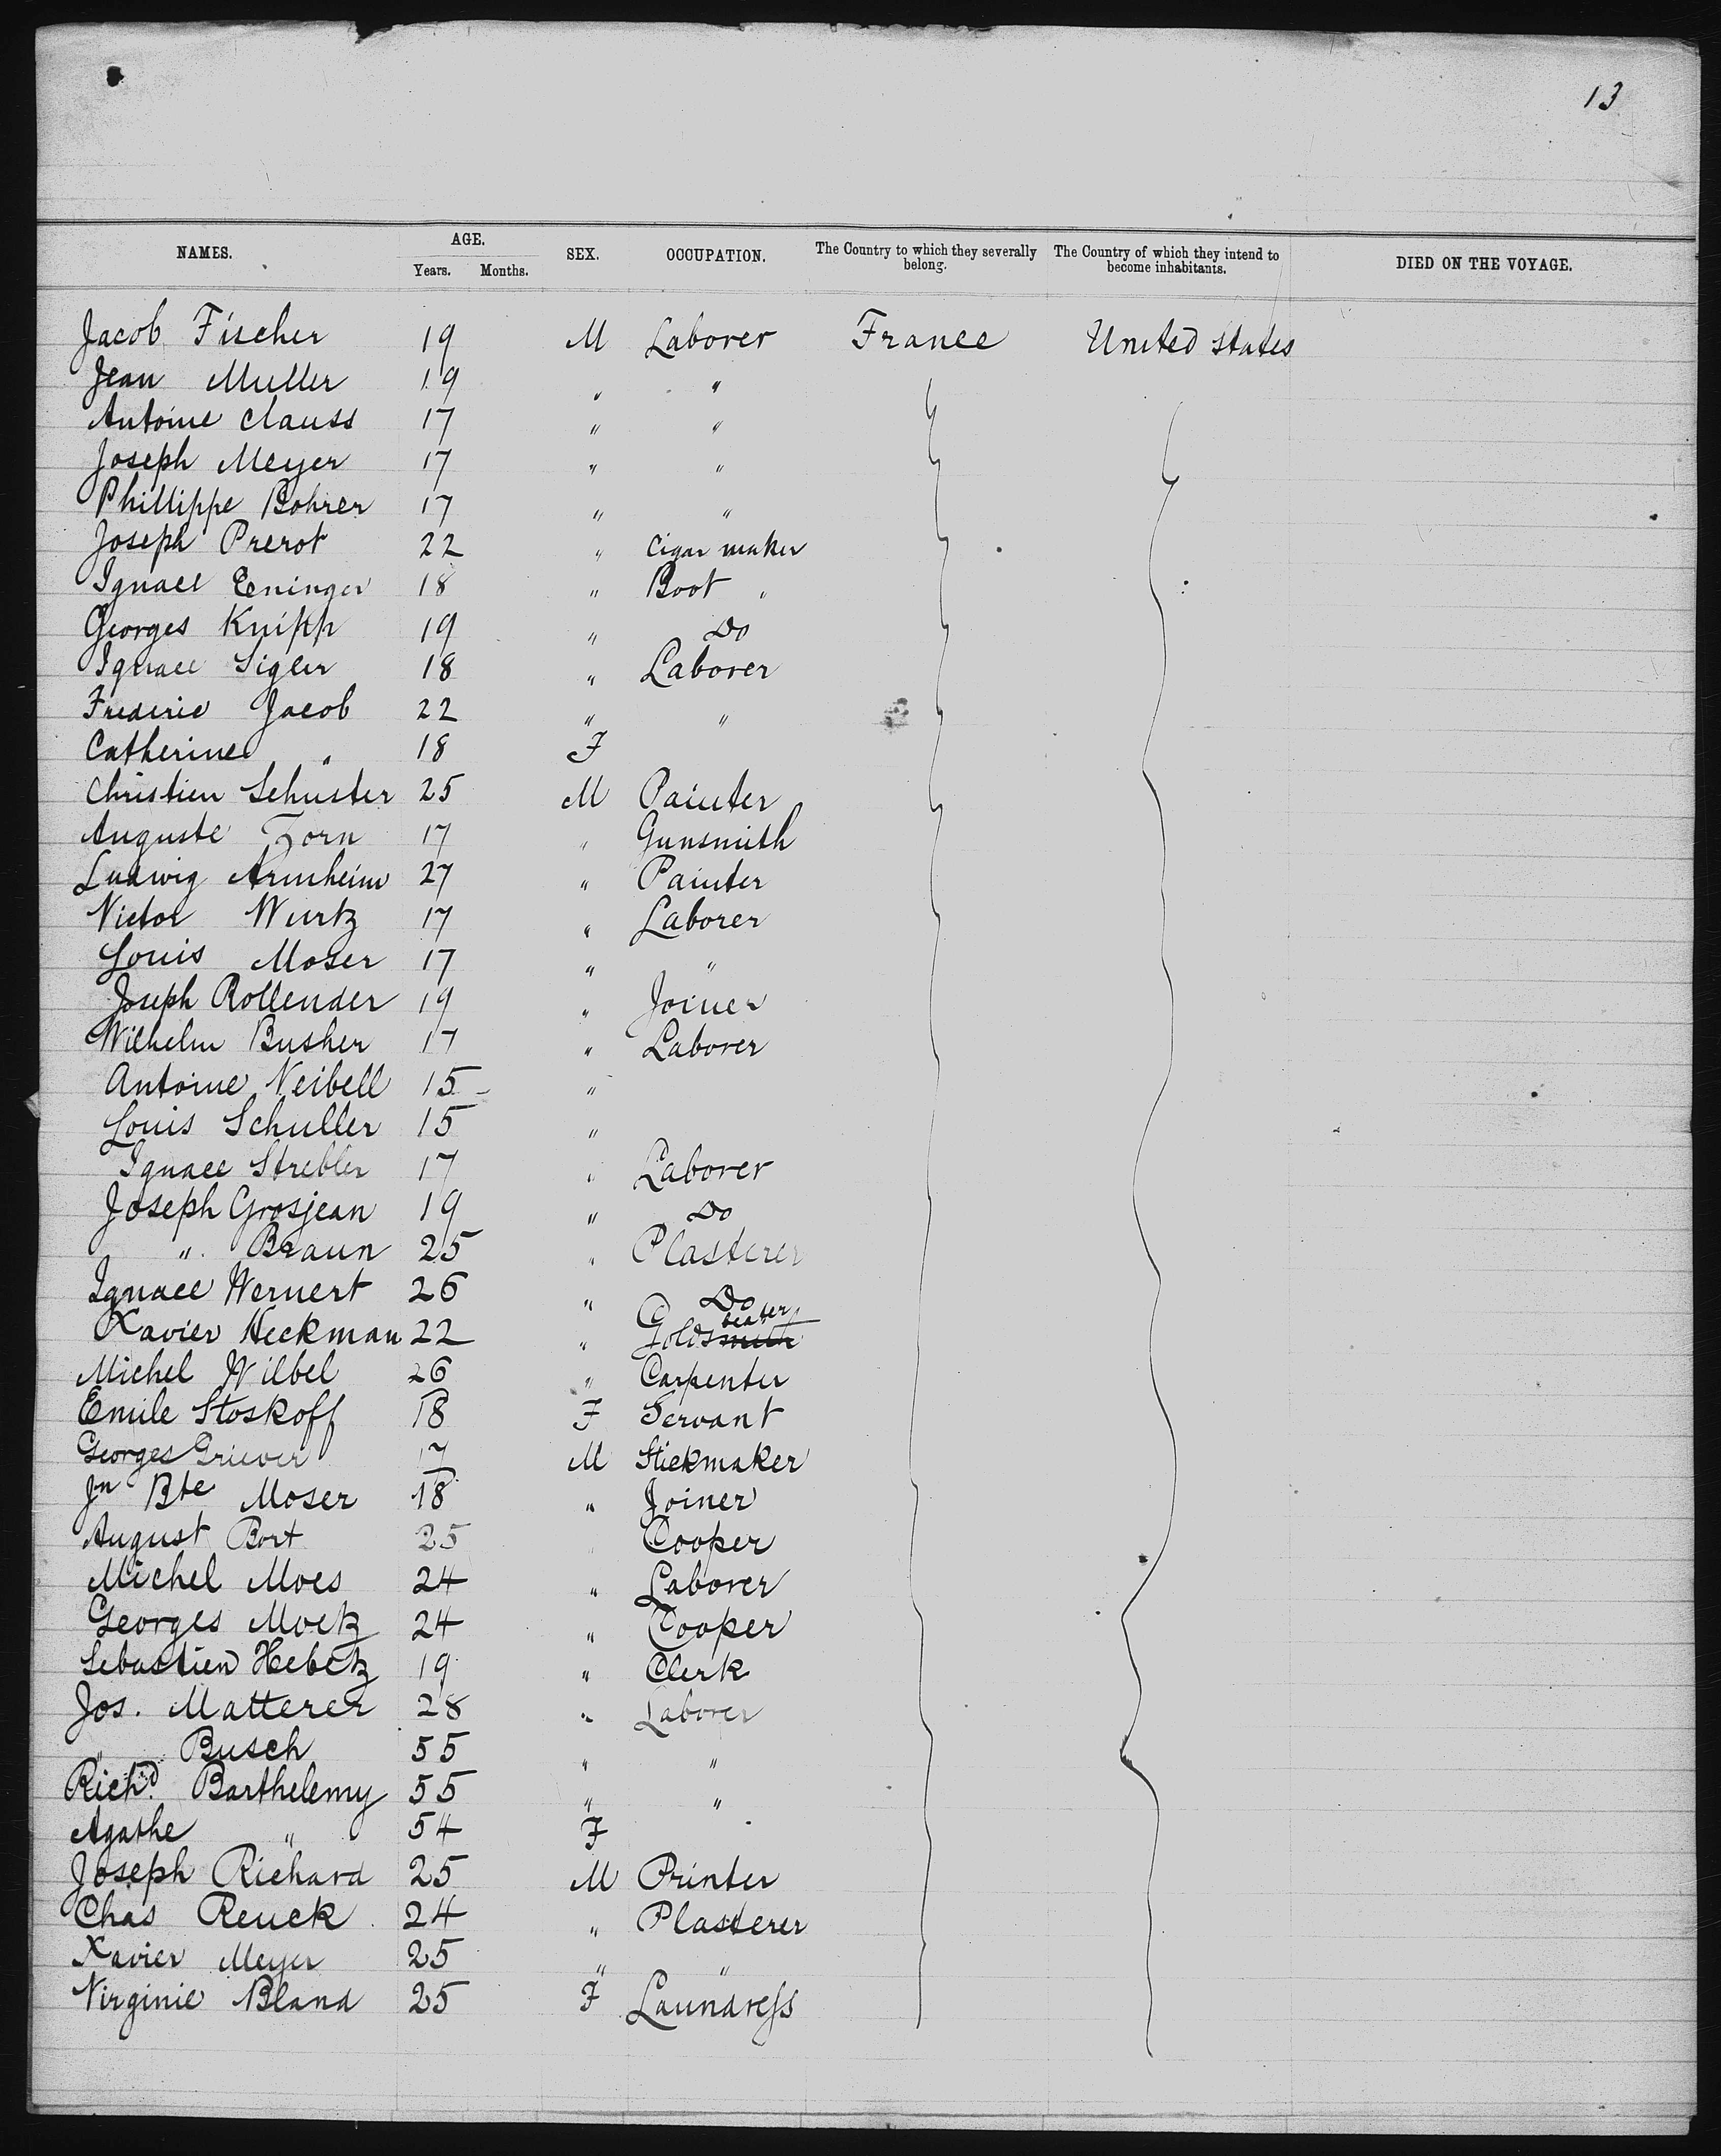 13
NAMES. AGE. Years. Months. SEX. OCCUPATION. The Country to which they severally belong. The Country of which they intend to become inhabitants. DIED ON THE VOYAGE.
Jacob Fischer 19 M Laborer France United States
Jean Muller 19 " "
Antoine Clauss 17 " "
Joseph Meyer 17 " "
Phillippe Bohrer 17 " "
Joseph Prerot 22 " Cigar maker
Ignace Eninger 18 " Boot "
Georges Knipp 19 " Do
Ignace Sigler 18 " Laborer
Frederic Jacob 22 " "
Catherine " 18 F
Christien Schuster 25 M Painter
Auguste Zorn 17 " Gunsmith
Ludwig Arnheim 27 " Painter
Victor Wurtz 17 " Laborer
Louis Moser 17 " "
Joseph Rollender 19 " Joiner
Wilhelm Busher 17 " Laborer
Antoine Neibell 15 "
Louis Schuller 15 "
Ignace Strebler 17 " Laborer
Joseph Grosjean 19 " Do
" Braun 25 " Plasterer
Ignace Wernert 26 " Do
Xavier Heckman 22 " Goldsmith beater
Michel Wilbel 26 " Carpenter
Emile Stoskoff 18 F Servant
Georges Griever 17 M Stickmaker
Jn Bte Moser 18 " Joiner
August Bort 25 Cooper
Michel Moes 24 " Laborer
Georges Moetz 24 " Cooper
Sebastien Hebetz 19 " Clerk
Jos. Matterer 28 " Laborer
" Busch 55 " "
Richd. Barthelemy 55 " "
Agathe " 54 F
Joseph Richard 25 M Printer
Chas Reuck 24 " Plasterer
Xavier Meyer 25 " "
Virginie Bland 25 F Laundress